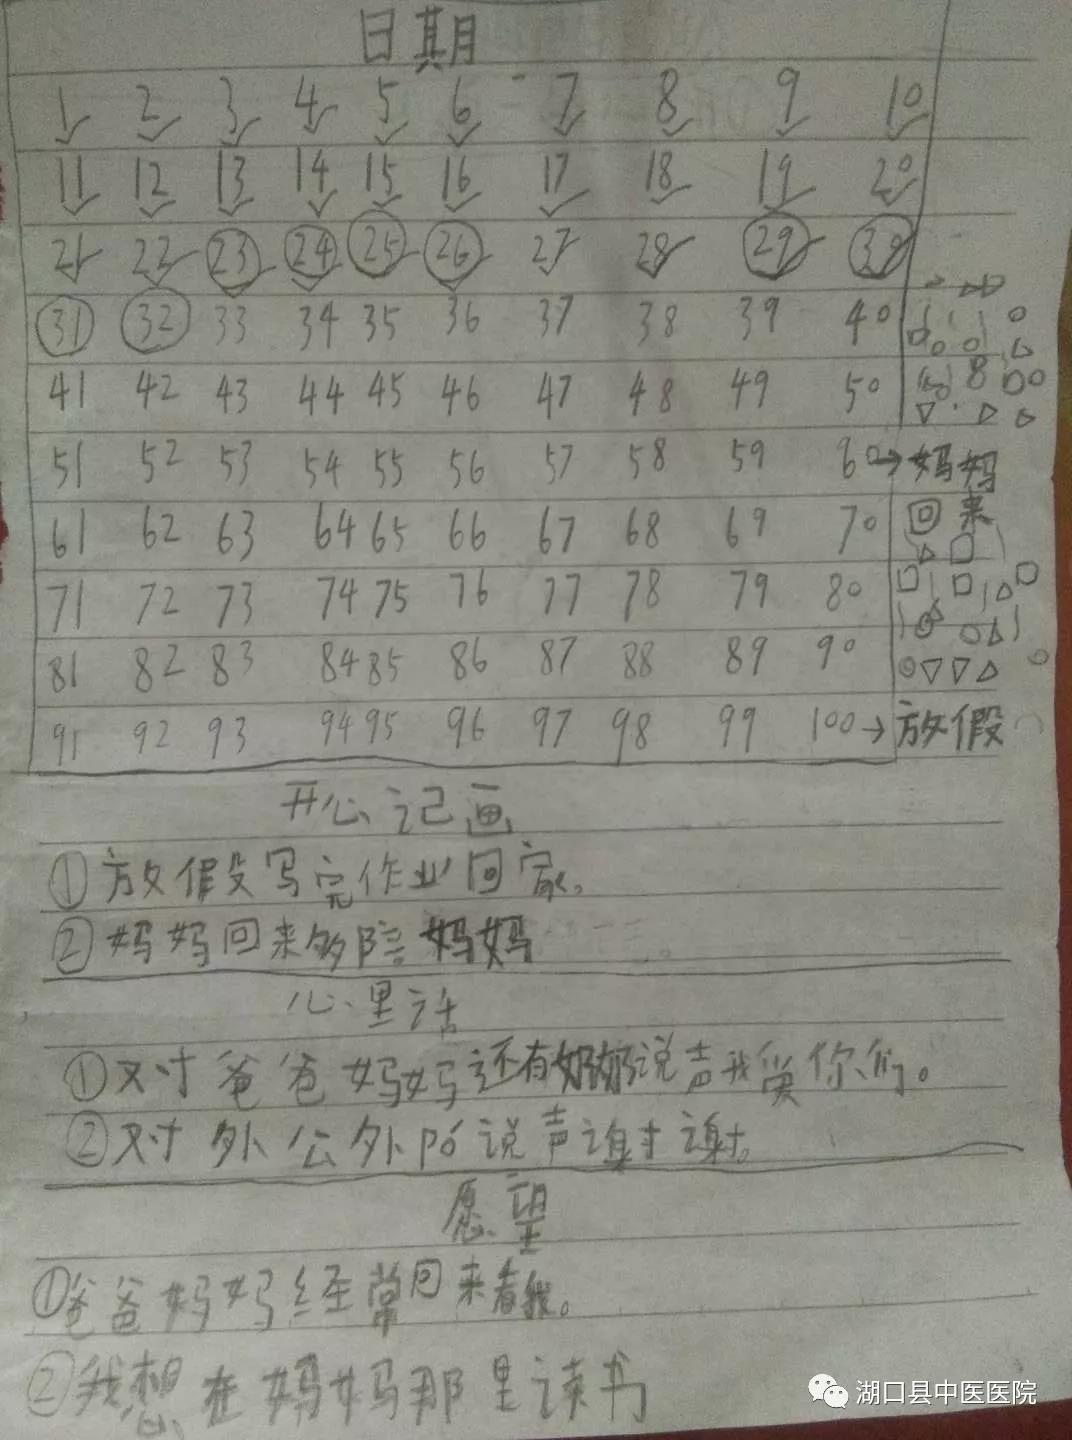 日期
1 2 3 4 5 6 7 8 9 10
11 12 13 14 15 16 17 18 19 20
21 22 23 24 25 26 27 28 29 30
31 32 33 34 35 36 37 38 39 40
41 42 43 44 45 46 47 48 49 50
51 52 53 54 55 56 57 58 59 60→妈妈
61 62 63 64 65 66 67 68 69 70 回来
71 72 73 74 75 76 77 78 79 80
81 82 83 84 85 86 87 88 89 90
91 92 93 94 95 96 97 98 99 100→放假
开心记画
①放假写完作业回家。
②妈妈回来多陪妈妈
心里话
①对爸爸妈妈还有奶奶说声我爱你们。
②对外公外说声谢谢。
愿望
①爸爸妈妈经常回来看我。
②我想在妈妈那里读书
湖口县中医医院